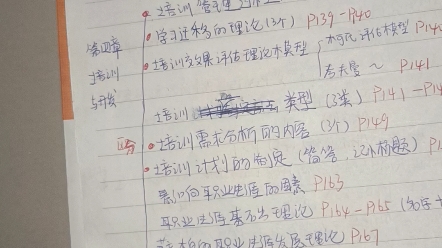 • 培训
• 学习迁移的理论(3个) P139-P140
第四章
• 培训效果评估理论与模型 柯氏评估模型 P14
考夫曼 ~ P141
培训
与开发
培训 类型(3类) P141-P14
• 培训需求分析的内容(3个) P149
• 培训计划的制定(简答、记小标题) P1
影响职业生涯的因素 P163
职业生涯 理论 P164-P165
的职业生涯发展理论 P167